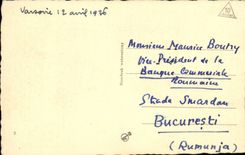 Varsovie 12 avril 1926
Monsieur Maurice Boutry
Vice-Président de la
Banque Commerciale
Roumaine
Strada Smardan
București
(Rumunja)